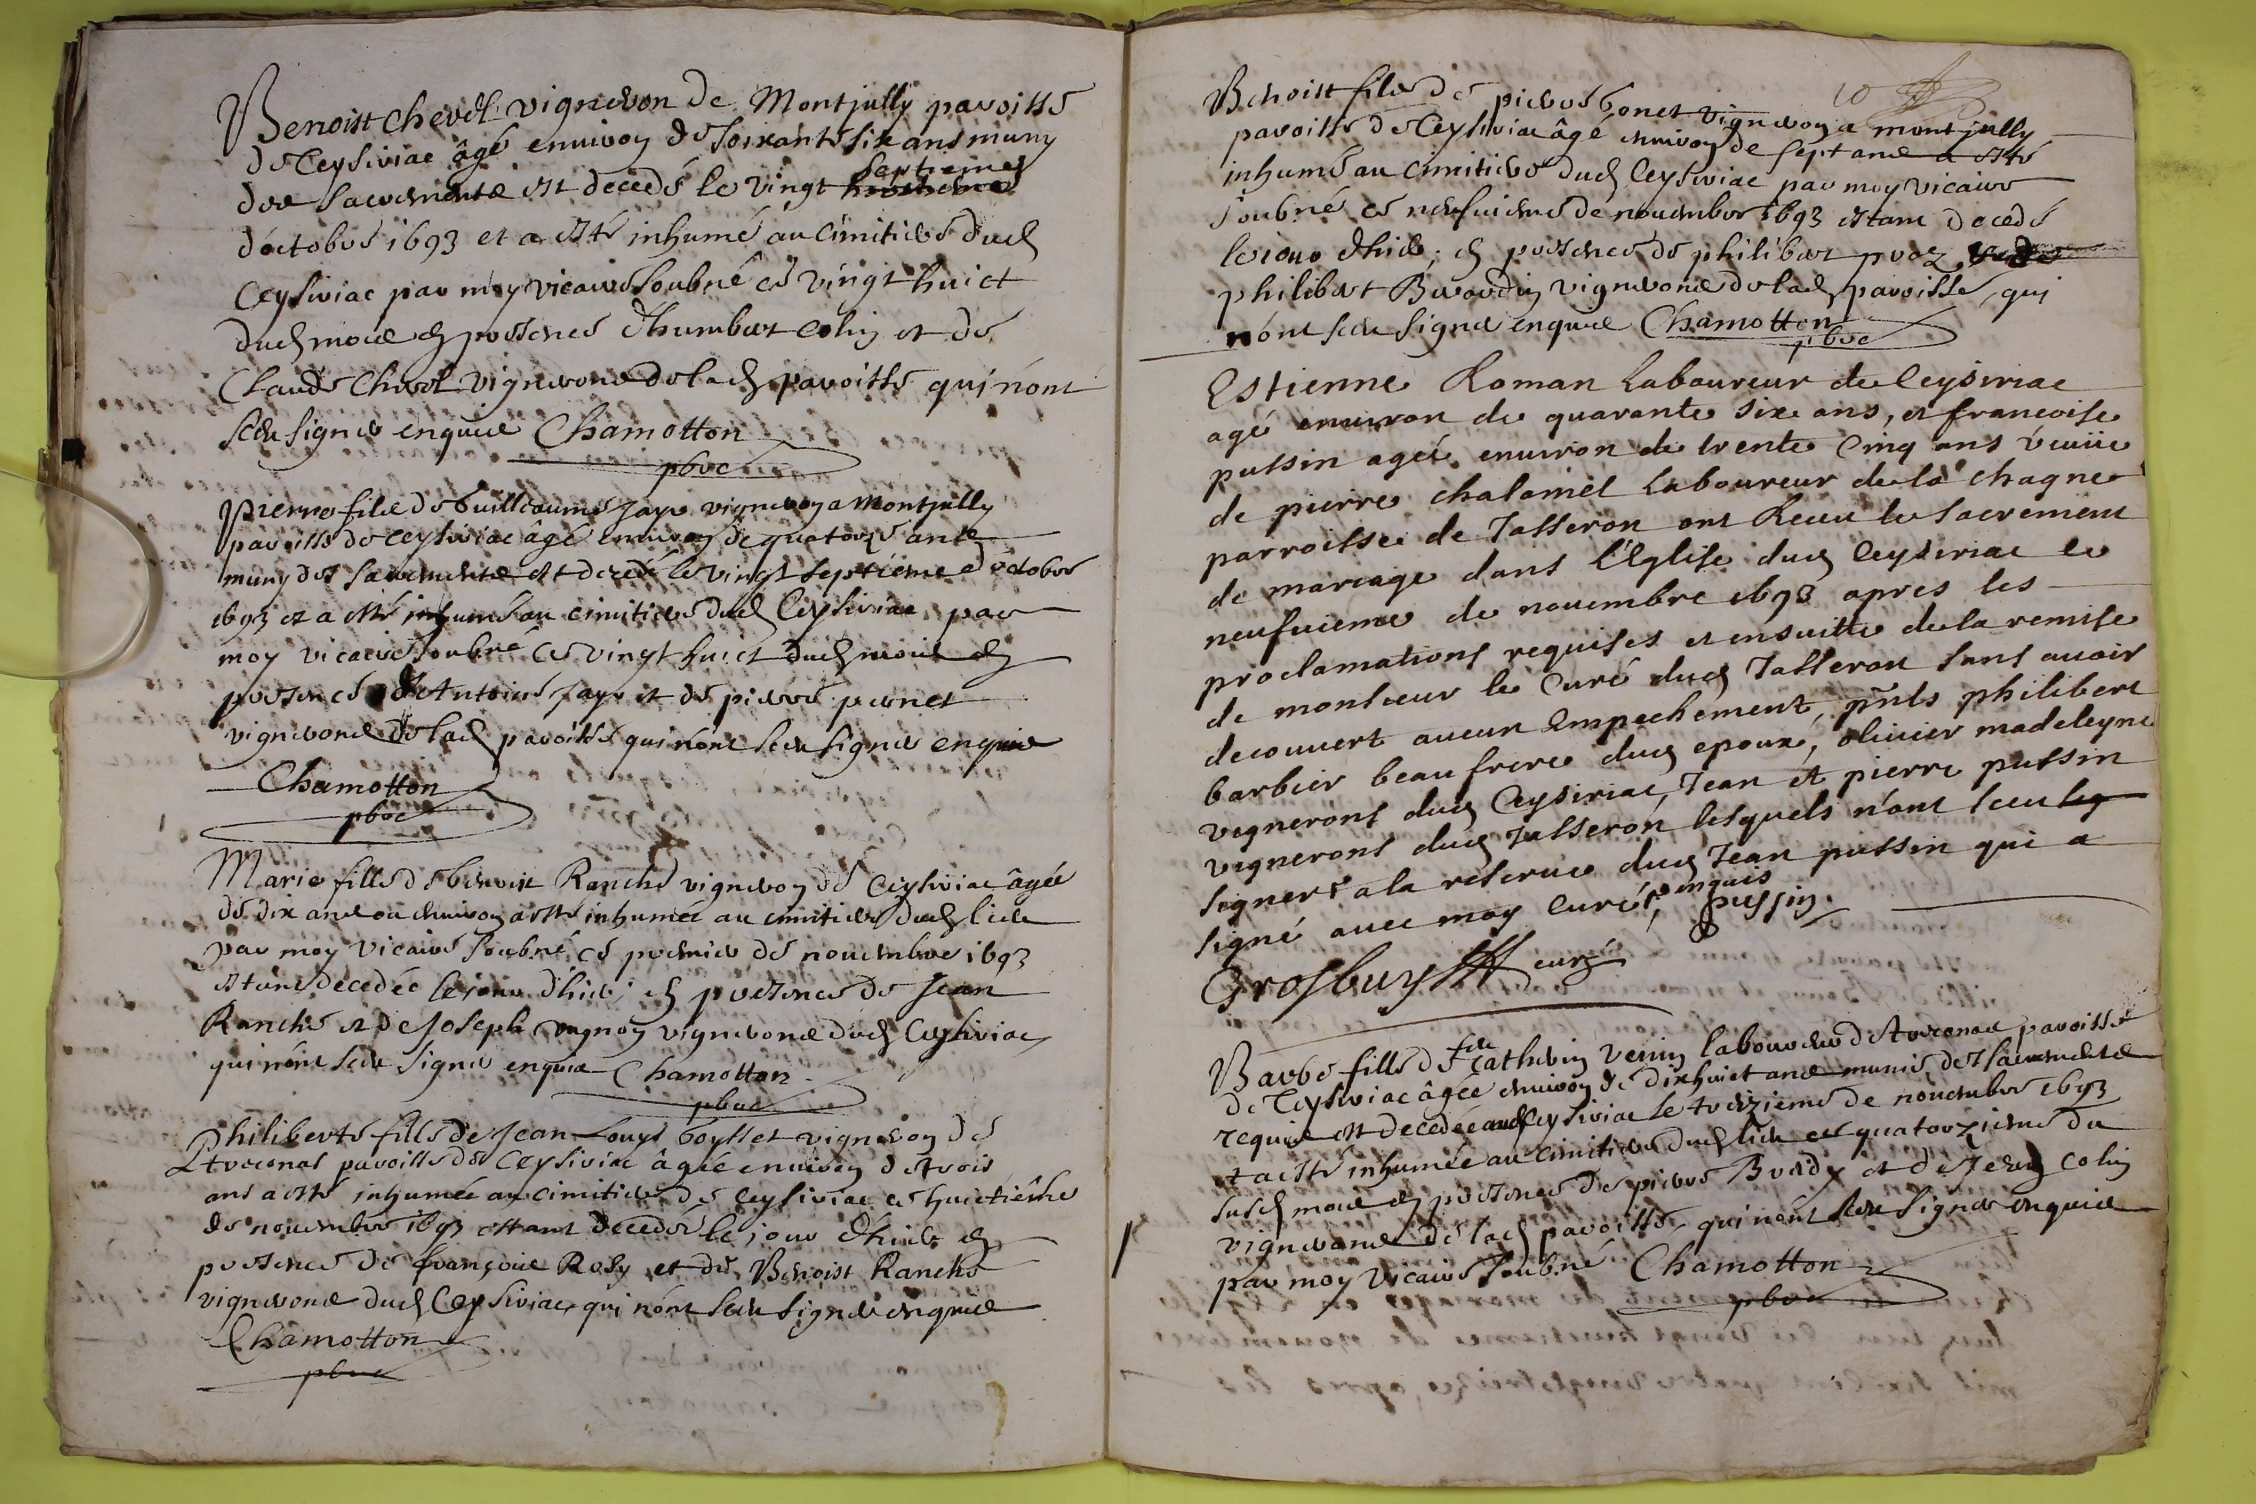 Benoist Chevel vigneron de Montjully paroisse
de Ceysiriac âgé enuiron de soixante six ans muny
septieme
des sacrements est decedé le vingt
d'octobre 1693 et a esté inhumé au cimitiere dud
Ceysiriac par moy vicaire soubné ce vingt huict
dud mois en presence d'humbert Colin et de
Claude Chevel vignerons de lad paroisse qui n'ont
sceu signer enquis Chamotton
pbre
Pierre fils de Guillaume Jayr vigneron a Montjully
paroisse de Ceysiriac âgé enuiron de quatorze ans
muny des sacrements est decedé le vingt septieme d'octobre
1693 et a esté inhumé au cimitiere dud Ceysiriac par
moy vicaire soubné ce vingt huict dud mois en
presence d'Antoine Jayr et de pierre
vignerons de lad paroisse qui n'ont sceu signer enquis
Chamotton
pbre
Marie fille de benoist Ranche vigneron de Ceysiriac âgée
de dix ans ou enuiron a esté inhumée au cimitiere dud lieu
par moy vicaire soubné ce premier de nouembre 1693
estant decedée le jour d'hier, en presence de Jean
Ranche et de Joseph vignerons dud Ceysiriac
qui n'ont sceu signer enquis Chamotton
pbre
Philiberte fille de Jean Louys boysset vigneron de
paroisse de Ceysiriac âgée enuiron de trois
ans a esté inhumée au cimitiere de Ceysiriac ce huictiême
de nouembre 1693 estant decedée le jour d'hier en
presence de françois Rosy et de Benoist Ranche
vignerons dud Ceysiriac qui n'ont sceu signer enquis
Chamotton
pbre
10
Benoist fils de pierre bonet vigneron a montjully
paroisse de Ceysiriac âgé enuiron de sept ans a esté
inhumé au cimitiere dud Ceysiriac par moy vicaire
soubné ce neufuieme de nouembre 1693 estant decedé
le jour d'hier; en presence de philibert
philibert vignerons de lad paroisse, qui
n'ont sceu signer enquis Chamotton
pbre
Estienne Roman Laboureur de Ceysiriac
agé enuiron de quarante six ans, et francoise
pussin agée enuiron de trente Cinq ans veuüe
de pierre chalamel Laboureur de la chagne
parroisse de Jasseron ont Receu le sacrement
de mariage dans l'Eglise dud Ceysiriac le
neufuieme de nouembre 1693 apres les
proclamations requises et ensuitte de la remise
de monsieur le Curé dud Jasseron sans auoir
decouuert aucun Empechement, pnts philibert
barbier beau frere dud epoux, oliuier madeleyne
vignerons dud Ceysiriac, Jean et pierre pussin
vignerons dud Jasseron lesquels n'ont sceu
signer a la reserue dud Jean pussin qui a
enquis
signé auec moy curé pussin
Grosbuys curé
feu
Barbe fille de Cathelin Venin laboureur paroisse
de Ceysiriac âgée enuiron de dixhuict ans munie des sacrements
requis est decedée aud Ceysiriac le treizieme de nouembre 1693
et a esté inhumée au cimitiere dud lieu ce quatorzieme du
susd mois en presence de pierre et de Colin
vignerons de lad paroisse qui n'ont sceu signer enquis
par moy vicaire soubné Chamotton
pbre